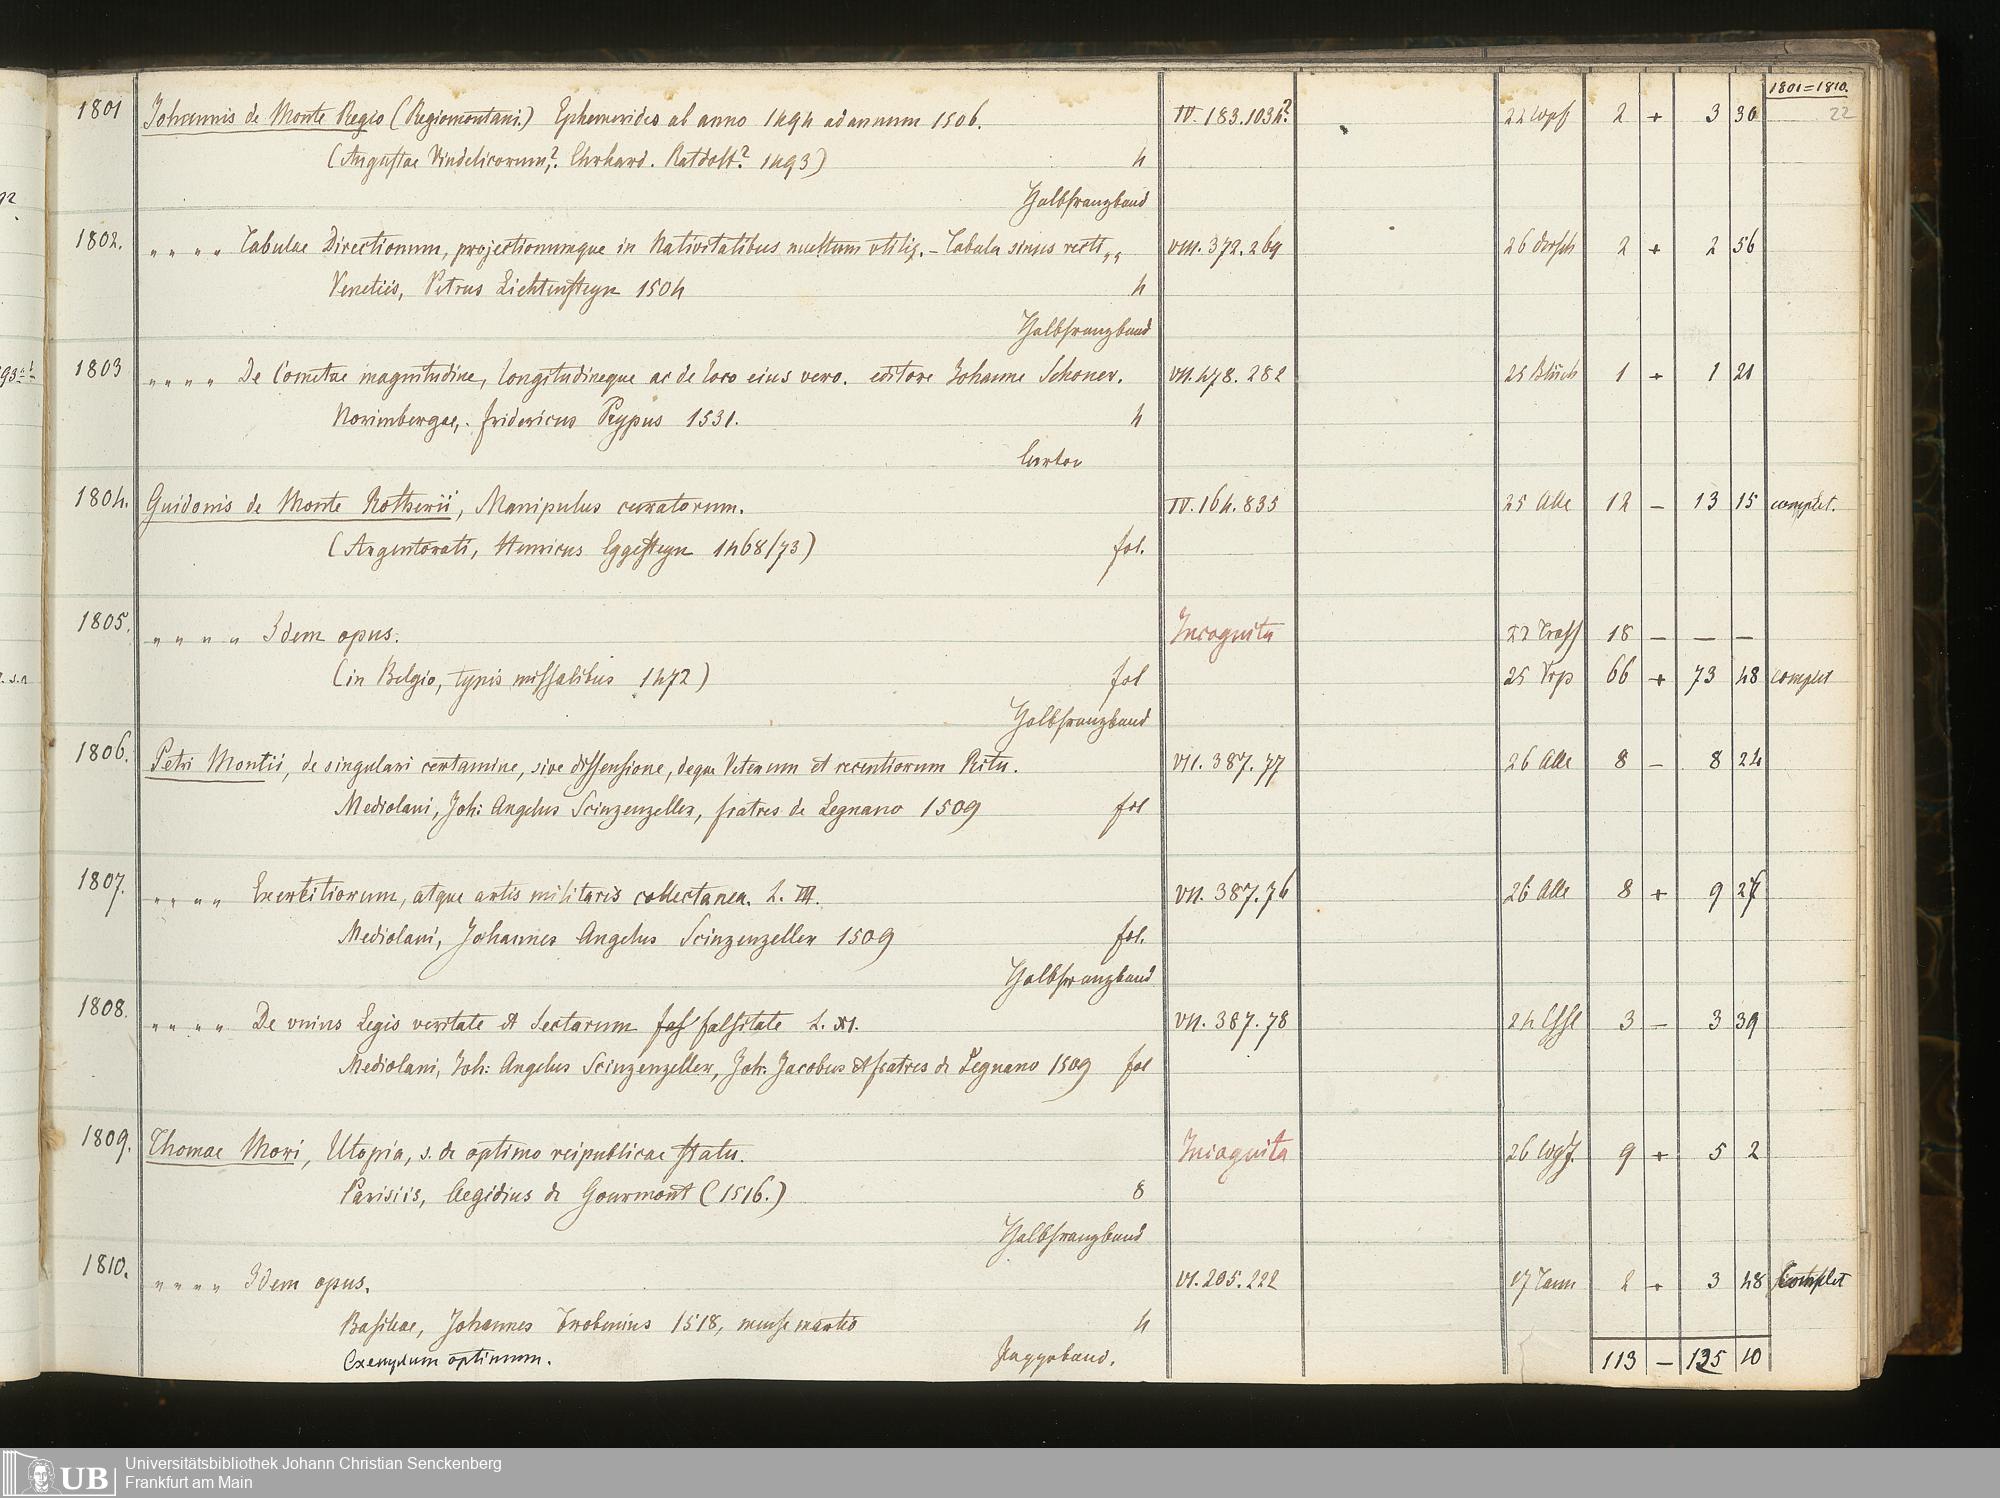 1801=1810.
22
1801 Johannis de Monte Regio (Regiomontani.) Ephemerides ab anno 1494 ad annum 1506. IV. 183.1034? 2 + 3 36
(Augustae Vindelicorum?. Ehrhard. Ratdolt? 1493) 4
Halbfranzband
1802. „ „ „ „ Tabulae Directionum, projectionumque in Nativitatibus multum vtiliz. – Tabula sinus recti „ „ VIII. 372.269 2 + 2 56
Venetiis, Petrus Liechtensteyn 1504 4
Halbfranzband
1803 „ „ „ „ De Cometae magnitudine, longitudineque ac de loco eius vero. editore Johanne Schoner. VII. 478. 282 1 + 1 21
Norimbergae, Fridericus Peypus 1531. 4
Carton
1804. Guidonis de Monte Rotherii, Manipulus curatorum. IV. 164. 835 25 Alle 12 – 13 15 complet.
(Argentorati, Henricus Eggesteyn 1468/73) fol.
1805. „ „ „ „ Idem opus. Incognita 18 – – –
(in Belgio, typis missalibus 1472) fol 66 + 73 48 complet
Halbfranzband
1806. Petri Montii, de singulari certamine, sive dissensione, deque Veterum et recentiorum Ritu. VII. 387. 77 26 Alle 8 – 8 24
Mediolani, Joh: Angelus Scinzenzeller, fratres de Legnano 1509 fol
1807. „ „ „ „ Exercitiorum, atque artis militaris collectanea. L. III. VII. 387. 76 26 Alle 8 + 9 27
Mediolani, Johannes Angelus Scinzenzeller 1509 fol.
Halbfranzband
1808. „ „ „ „ De vnius Legis veritate et Sectarum fas falsitate L. XI. VII. 387. 78 3 – 3 39
Mediolani, Joh: Angelus Scinzenzeller, Joh: Jacobus et fratres de Legnano 1509 fol
1809. Thomae Mori, Utopia, s. de optimo reipublicae statu. Incognita 9 + 5 2
Parisiis, Aegidius de Gourmont (1516.) 8
Halbfranzband
1810. „ „ „ „ Idem opus. VI. 205. 222 2 + 3 48 complet
Basileae, Johannes Frobenius 1518, mense martio 4
Exemplum optimum. Pappband.
113 – 125 10
UB Universitätsbibliothek Johann Christian Senckenberg
Frankfurt am Main